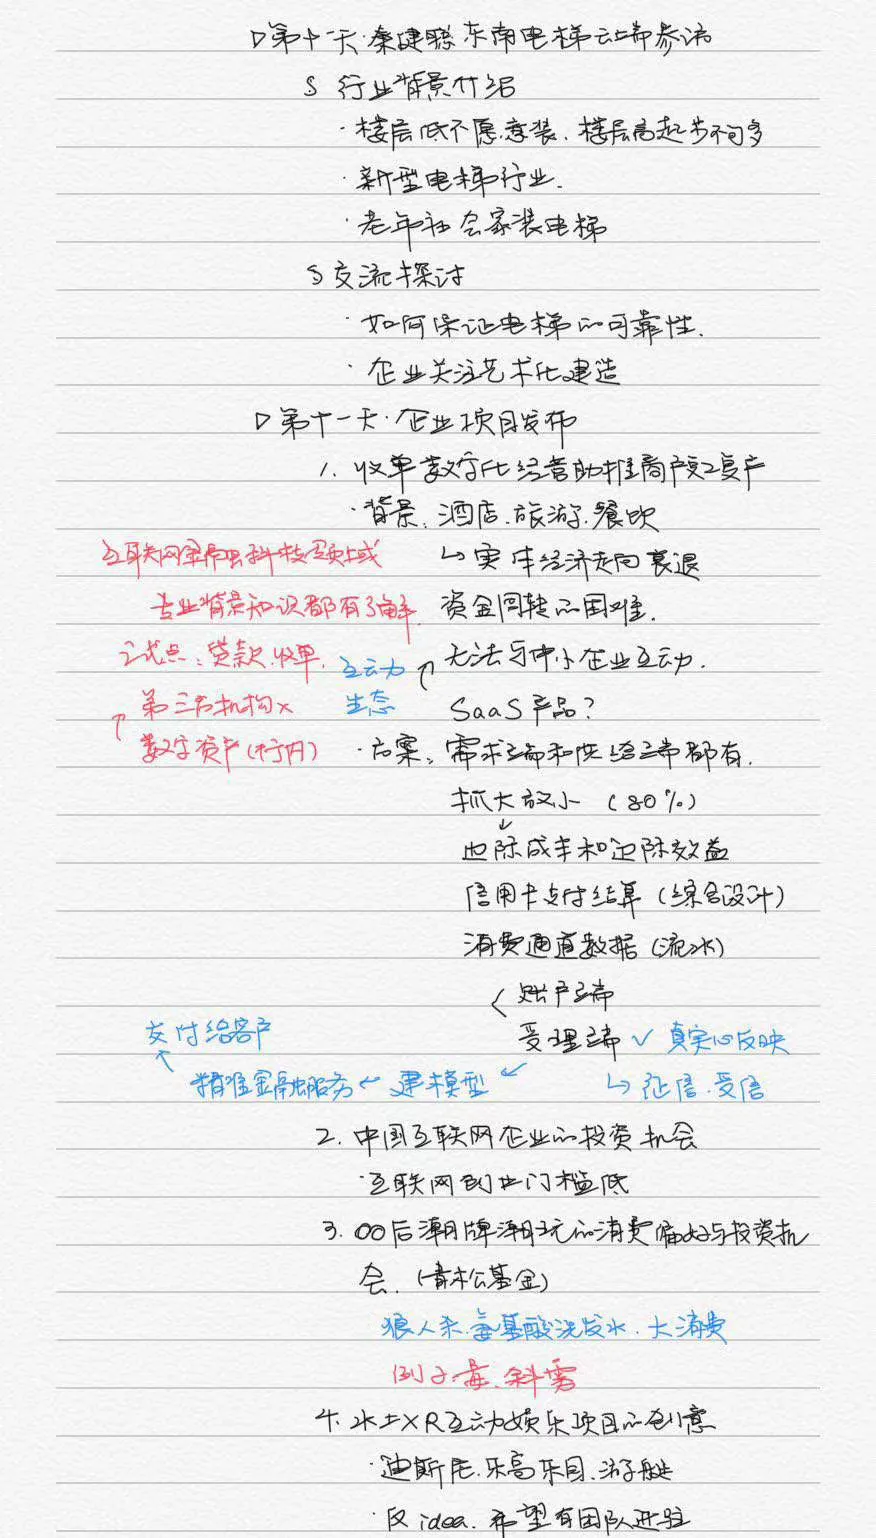 ▷第十一天·秦健聪 东南电梯云端参访
§ 行业背景介绍
·楼层低不愿意装、楼层高起步不同多
·新型电梯行业.
·老年社会家装电梯
§ 交流探讨
·如何保证电梯的可靠性.
·企业关注艺术化建造
▷第十一天·企业项目发布
1. 收单数字化经营助推商户复工复产
·背景：酒店.旅游.餐饮
互联网金融科技领域
↳实体经济走向衰退
专业背景知识都有了解
资金回转的困难.
试点：贷款.收单.
互动力
↗无法与中小企业互动.
第三方机构×
生态
SaaS产品?
↑数字资产(行内)
·方案：需求端和供给端都有.
抓大放小 (80%)
↓
边际成本和边际效益
信用卡支付结算 (综合设计)
消费通道数据 (流水)
< 账户端
交付给客户
受理端 ✓ 真实的反映
↖ 精准金融服务 ← 建模型 ↙
↳ 征信.受信
2. 中国互联网企业的投资机会
·互联网创业门槛低
3. 00后潮牌潮玩的消费偏好与投资机
会. (青松基金)
狼人杀.氨基酸洗发水.大消费
例子:毒.斜雾
4. 水上XR互动娱乐项目的创意
·迪斯尼.乐高乐园.游艇
·仅idea.希望有团队进驻